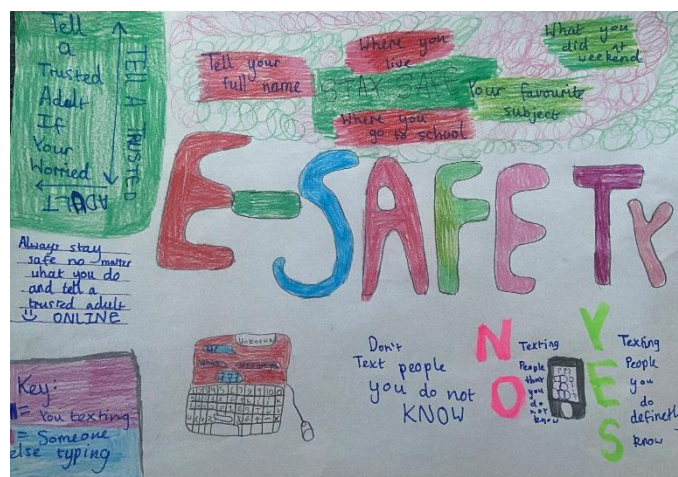 Tell
a
Trusted
Adult
If
Your
Worried
TELL A TRUSTED
ADULT
Tell your
full name
Where you
live
What you
did at
weekend
STAY SAFE
Your favourite
subject
Where you
go to school
E-SAFETY
Always stay
safe no matter
what you do
and tell a
trusted adult
ONLINE
Key:
= You texting
= Someone
else typing
Unknown
???
Don't
Text people
you do not
KNOW
NO
Texting
People
that
you
do
not
know
YES
Texting
People
you
do
definetl
know